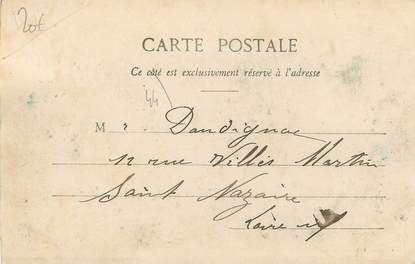 20€
CARTE POSTALE
Ce côté est exclusivement réservé à l'adresse
44
M r Dandignac
12 rue Villès Martin
Saint Nazaire
Loire